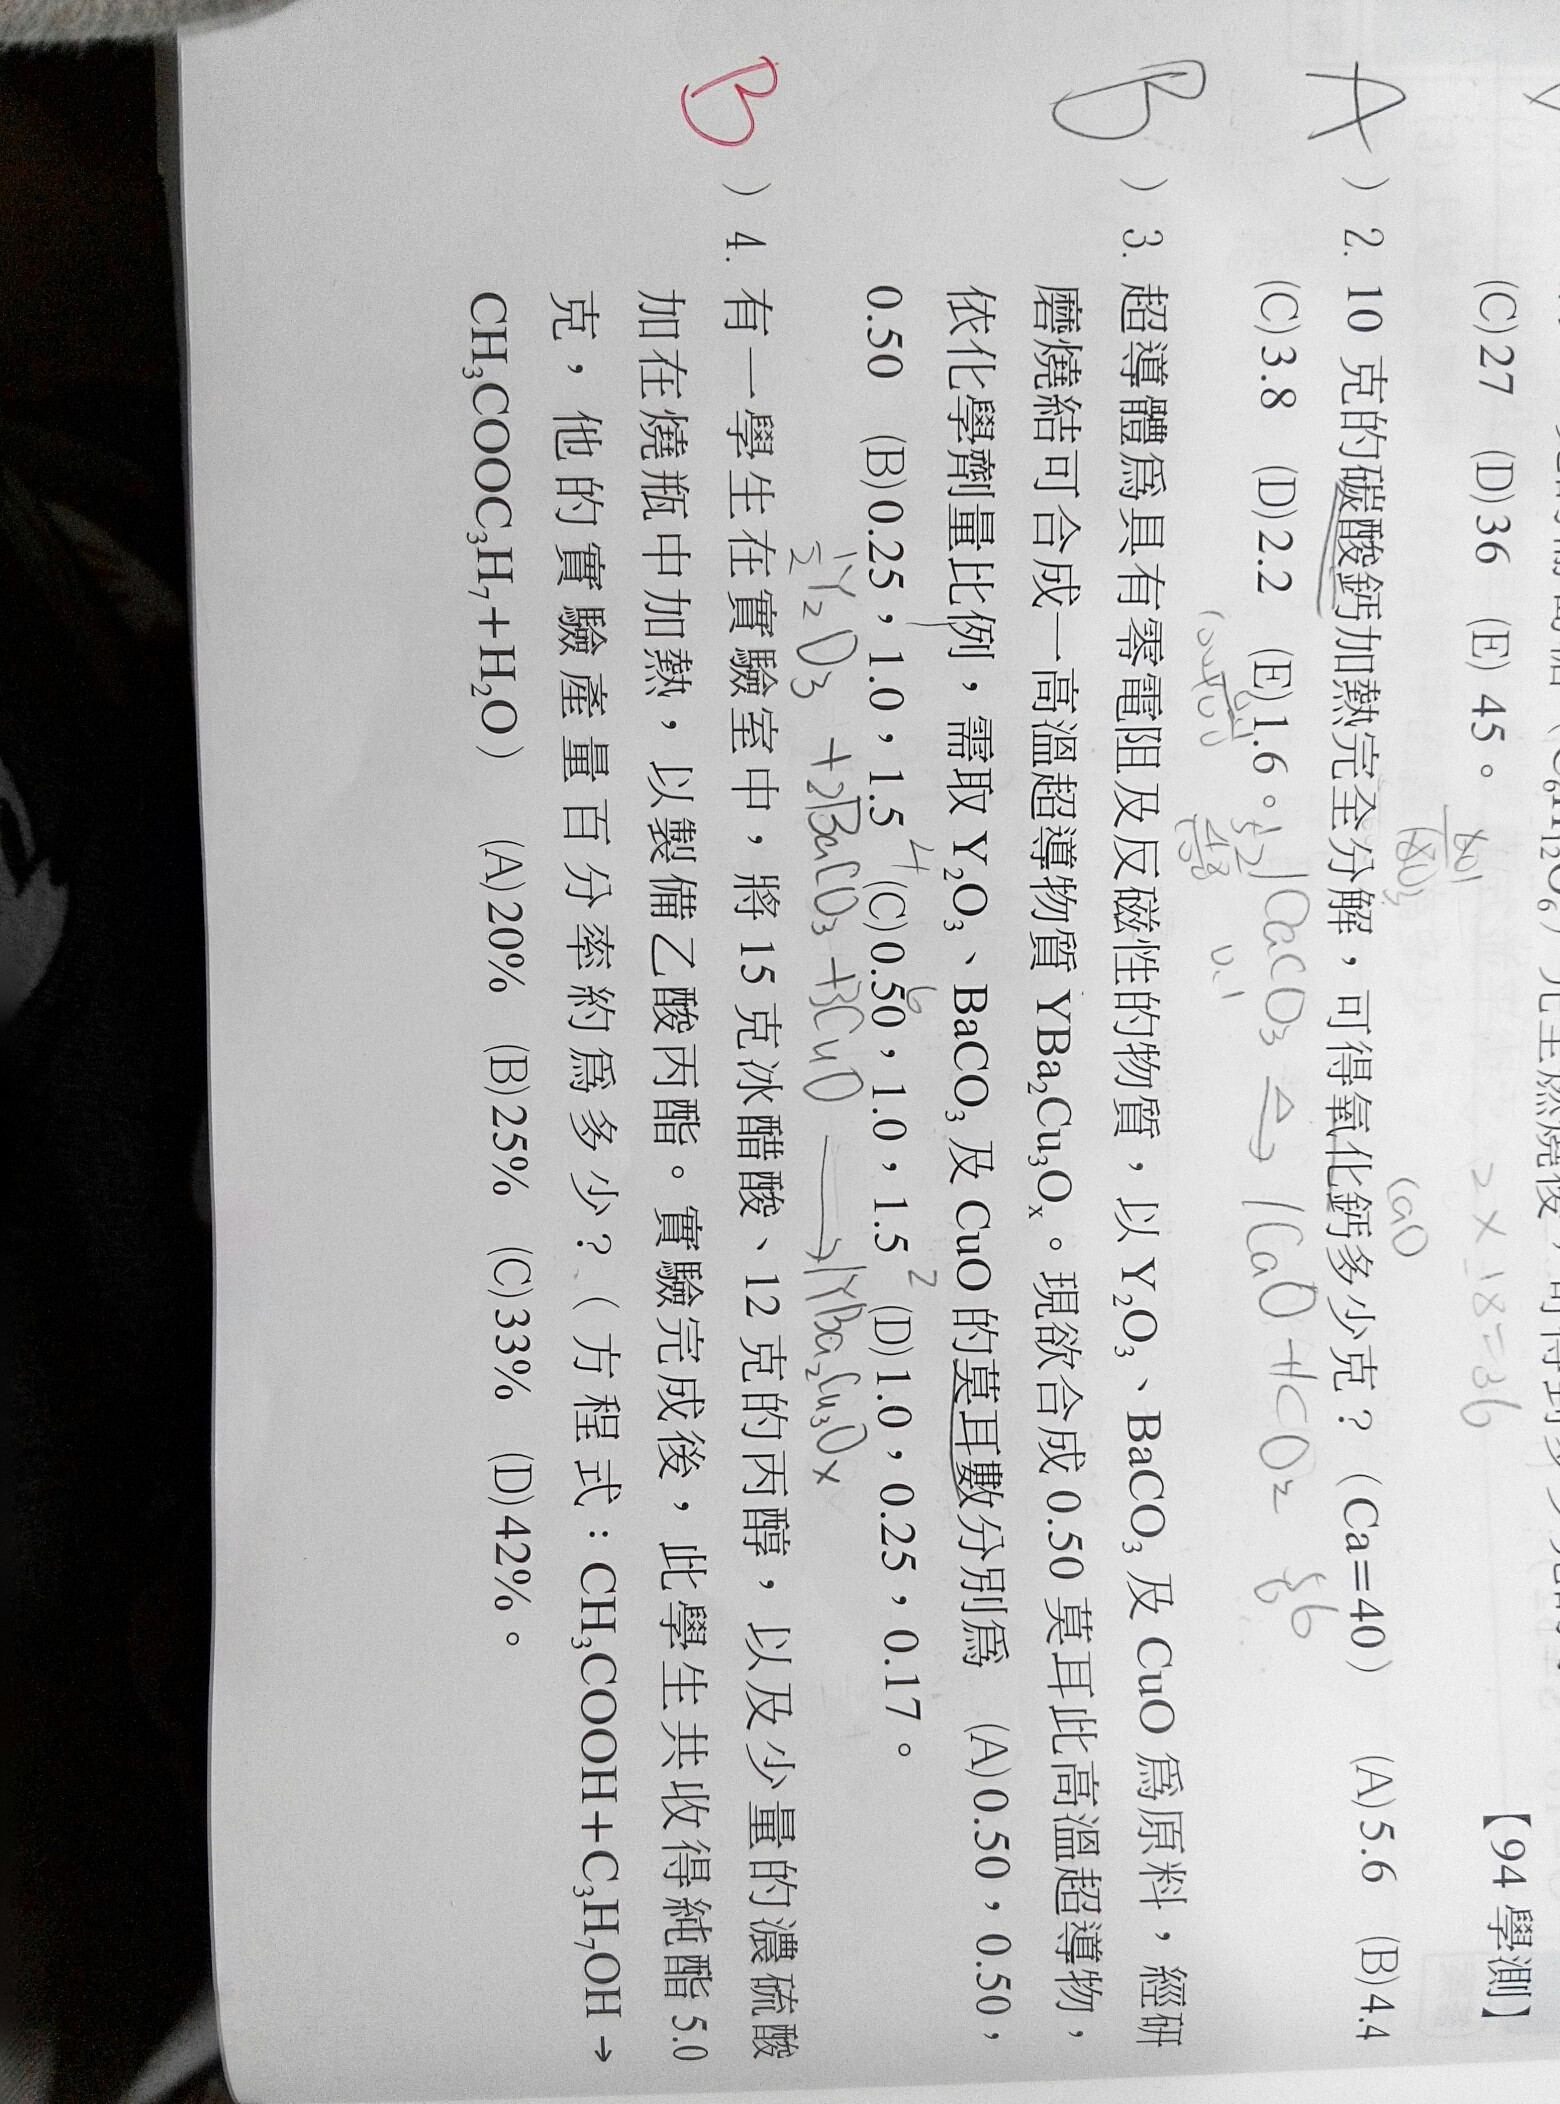 (C)27 (D)36 (E) 45。
【94 學測】
2×18=36
A ) 2. 10 克的碳酸鈣加熱完全分解,可得氧化鈣多少克?(Ca=40) (A)5.6 (B)4.4
CaO
(C)3.8 (D)2.2 (E)1.6。
1CaCO₃ →△ 1CaO+CO₂
56
0.1
B ) 3. 超導體為具有零電阻及反磁性的物質,以 Y₂O₃、BaCO₃ 及 CuO 為原料,經研
磨燒結可合成一高溫超導物質 YBa₂Cu₃Oₓ。現欲合成 0.50 莫耳此高溫超導物,
依化學劑量比例,需取 Y₂O₃、BaCO₃ 及 CuO 的莫耳數分別為 (A)0.50,0.50,
0.50 (B)0.25,1.0,1.5 (C)0.50,1.0,1.5 (D)1.0,0.25,0.17。
4 6 2
½Y₂O₃ +2BaCO₃+3CuO → 1YBa₂Cu₃Oₓ
B ) 4. 有一學生在實驗室中,將 15 克冰醋酸、12 克的丙醇,以及少量的濃硫酸
加在燒瓶中加熱,以製備乙酸丙酯。實驗完成後,此學生共收得純酯 5.0
克,他的實驗產量百分率約為多少?(方程式:CH₃COOH+C₃H₇OH→
CH₃COOC₃H₇+H₂O) (A)20% (B)25% (C)33% (D)42%。